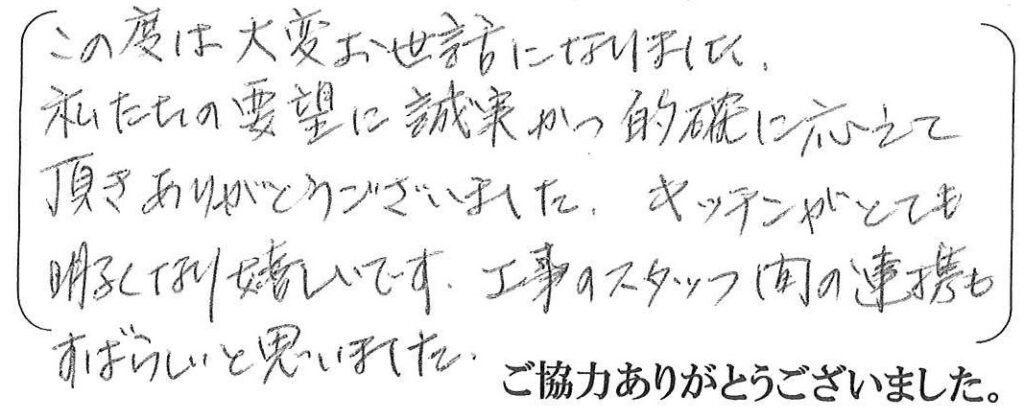 この度は大変お世話になりました.
私たちの要望に誠実かつ的確に応えて
頂きありがとうございました. キッチンがとても
明るくなり嬉しいです. 工事のスタッフ間の連携も
すばらしいと思いました.
ご協力ありがとうございました。